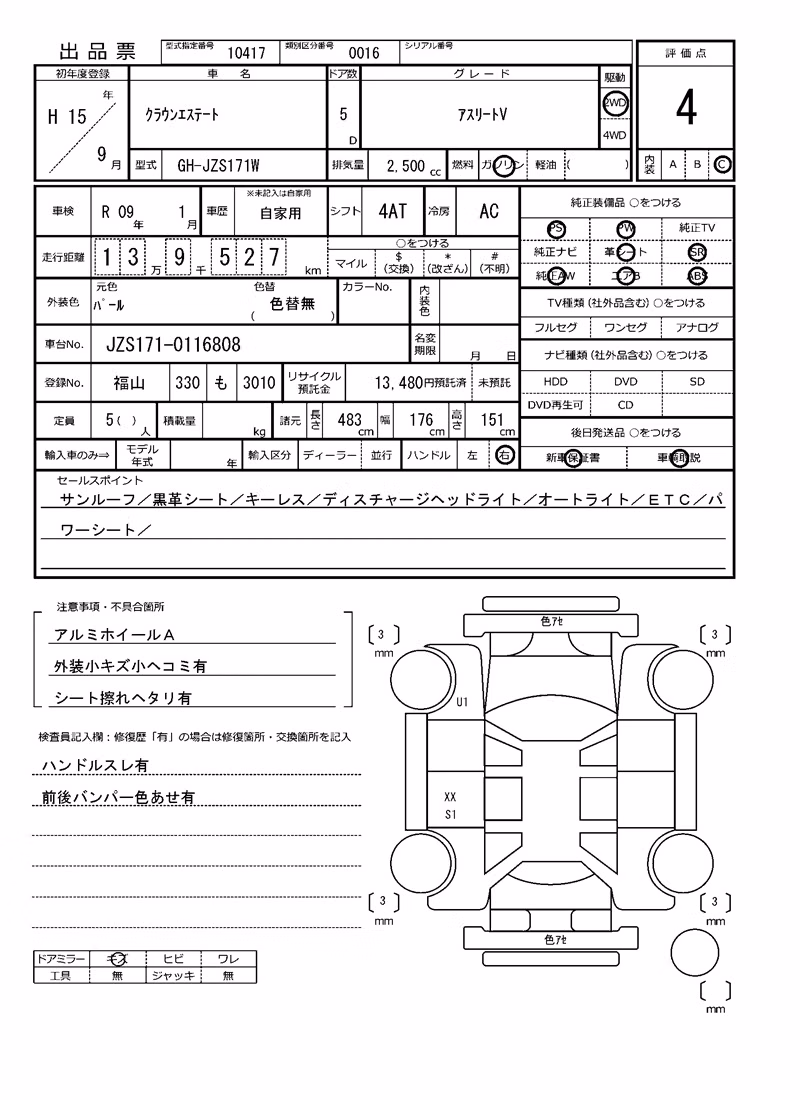 出品票 型式指定番号 10417 類別区分番号 0016 シリアル番号
評価点
初年度登録 車名 ドア数 グレード 駆動
H 15 年 9 月 クラウンエステート 5 D アスリートV 2WD 4WD
4
型式 GH-JZS171W 排気量 2,500 cc 燃料 ガソリン 軽油 ( )
内装 A B C
車検 R 09 年 1 月 車歴 ※未記入は自家用 自家用 シフト 4AT 冷房 AC
走行距離 1 3 万 9 千 5 2 7 km ○をつける
マイル $ (交換) * (改ざん) # (不明)
外装色 元色 パール 色替 ( 色替無 ) カラーNo. 内装色
車台No. JZS171-0116808 名変期限 月 日
登録No. 福山 330 も 3010 リサイクル預託金 13,480円預託済 未預託
定員 5 ( ) 人 積載量 kg 諸元 長さ 483 cm 幅 176 cm 高さ 151 cm
輸入車のみ⇒ モデル年式 年 輸入区分 ディーラー 並行 ハンドル 左 右
純正装備品 ○をつける
PS PW 純正TV
純正ナビ 革シート SR
純正AW エアB ABS
TV種類(社外品含む) ○をつける
フルセグ ワンセグ アナログ
ナビ種類(社外品含む) ○をつける
HDD DVD SD
DVD再生可 CD
後日発送品 ○をつける
新車保証書 車輌取説
セールスポイント
サンルーフ/黒革シート/キーレス/ディスチャージヘッドライト/オートライト/ETC/パ
ワーシート/
注意事項・不具合箇所
アルミホイールA
外装小キズ小ヘコミ有
シート擦れヘタリ有
検査員記入欄:修復歴「有」の場合は修復箇所・交換箇所を記入
ハンドルスレ有
前後バンパー色あせ有
ドアミラー キズ ヒビ ワレ
工具 無 ジャッキ 無
色アセ
[ 3 ] mm
[ 3 ] mm
U1
XX
S1
[ 3 ] mm
[ 3 ] mm
色アセ
[ ] mm